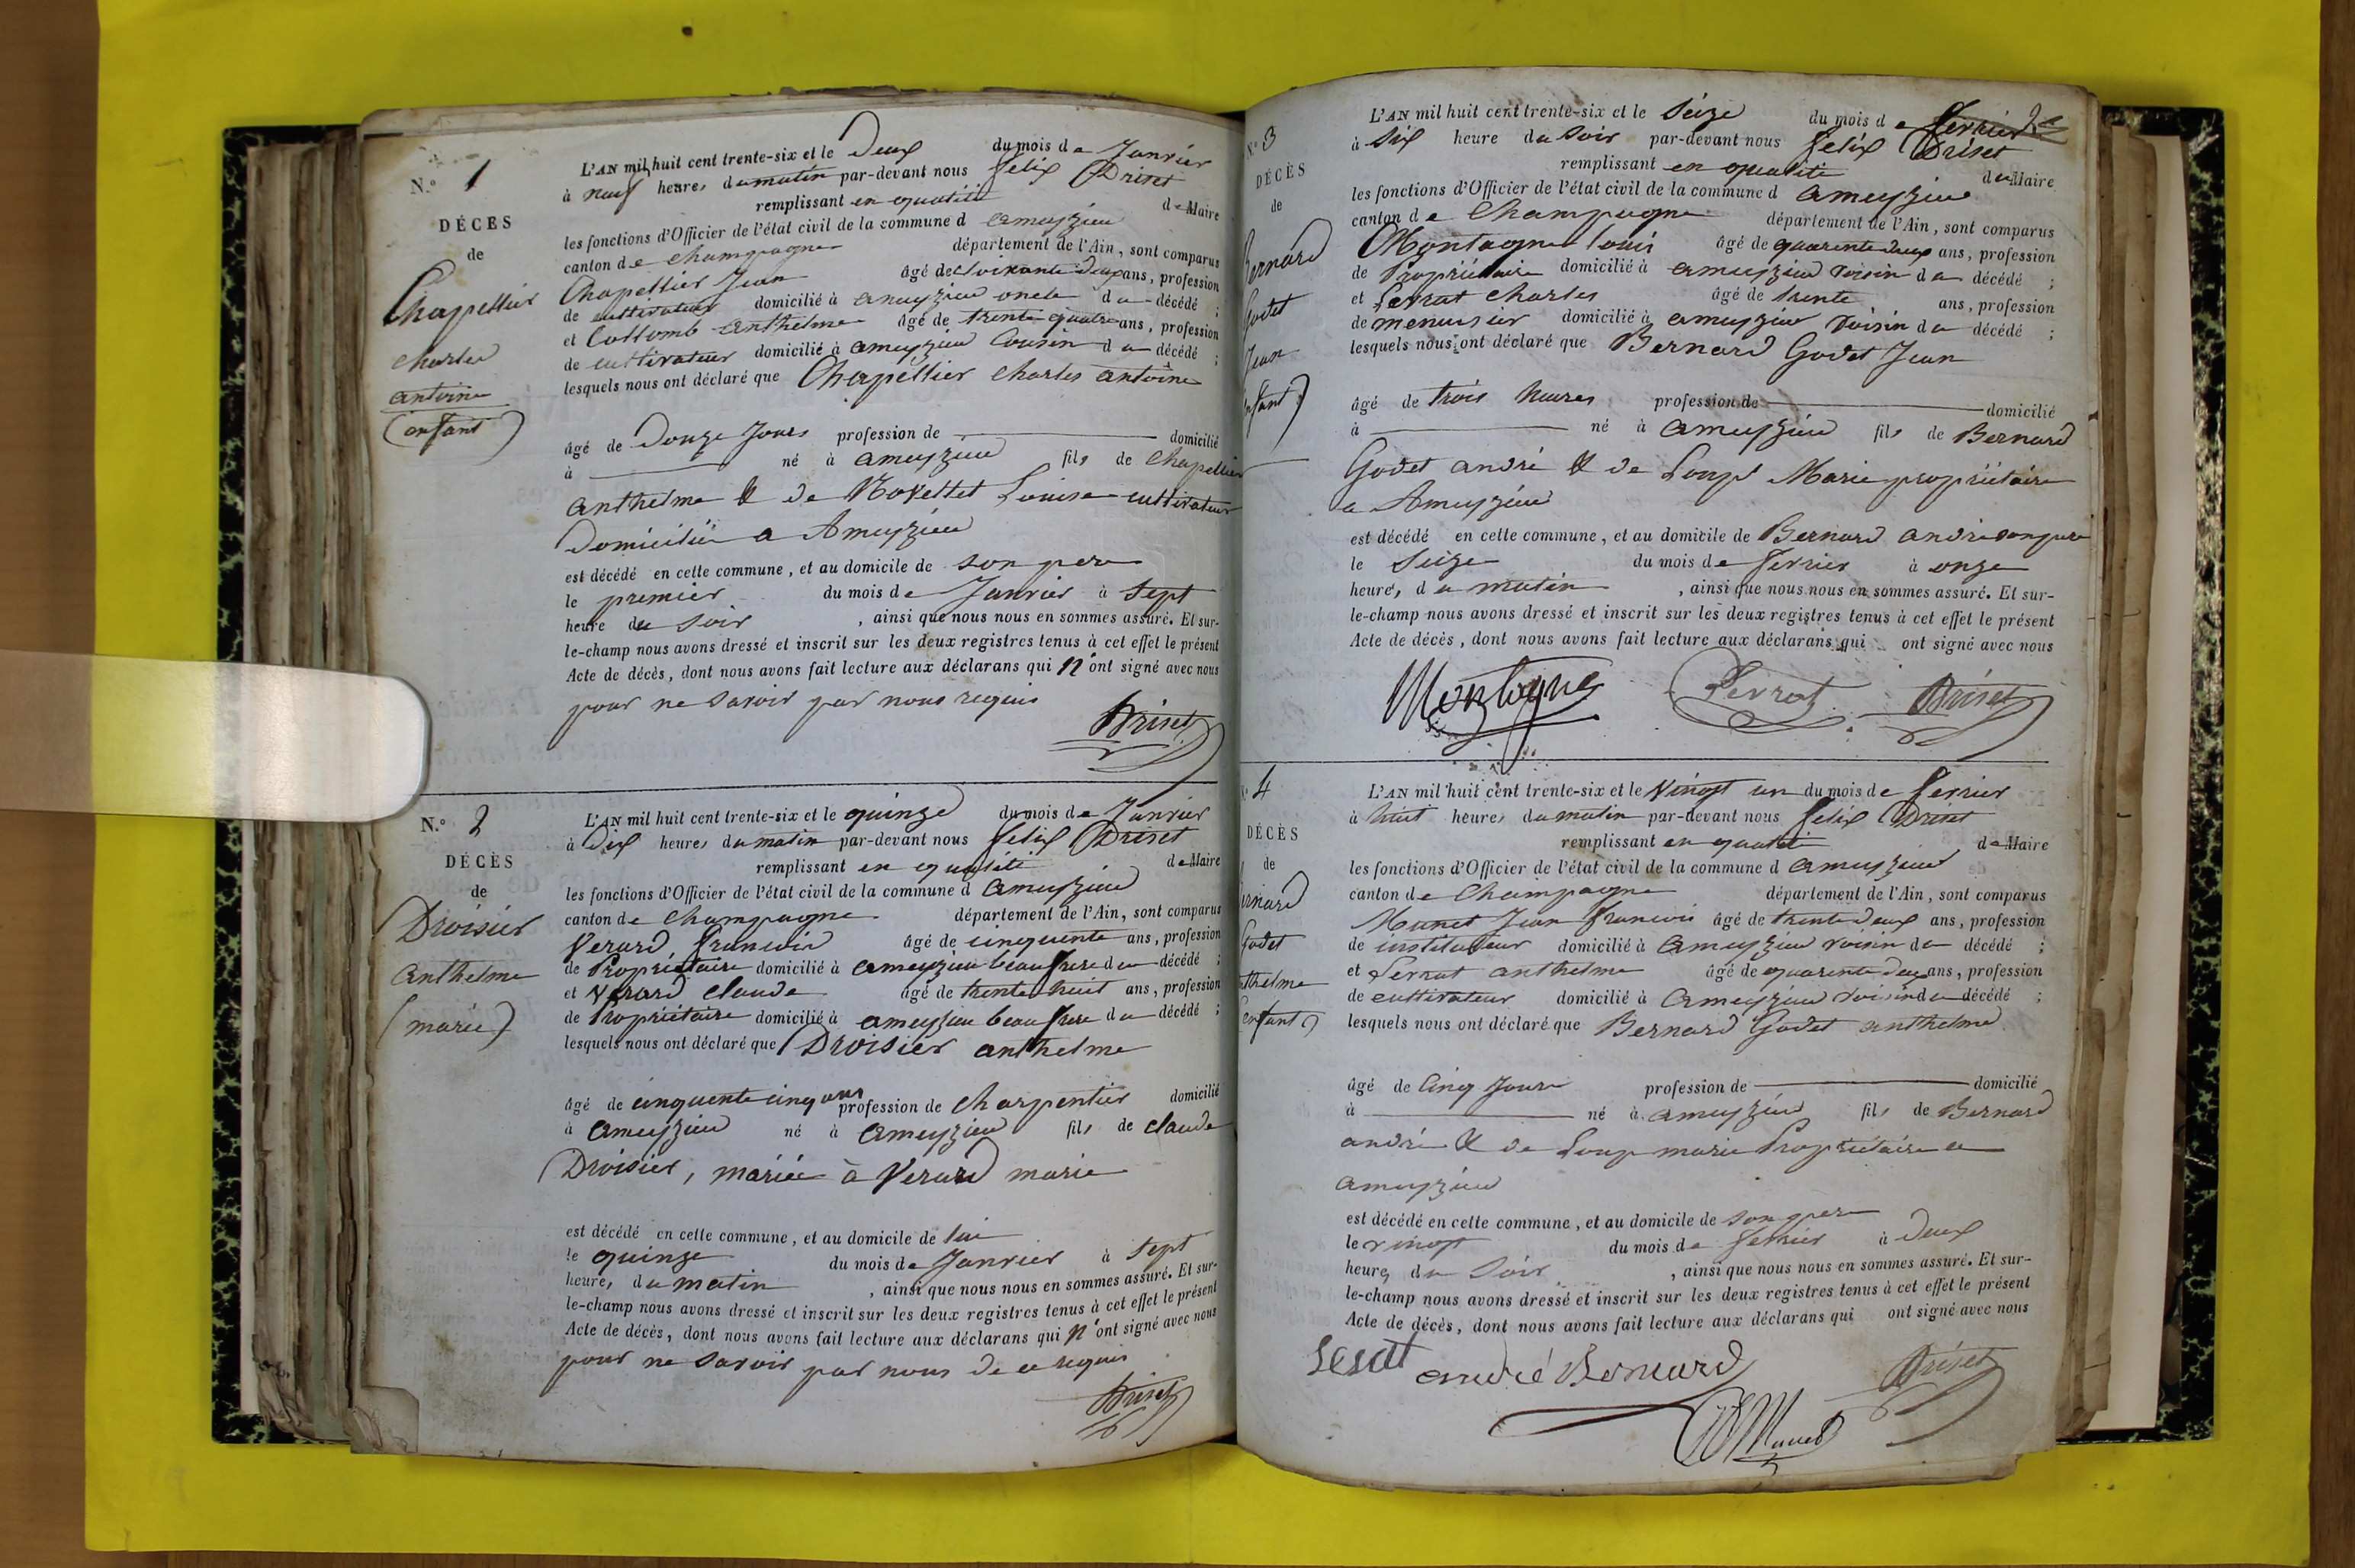 N.° 1
DÉCES
de
Chapellier
charles
antoine
(enfant)
L'AN mil huit cent trente-six et le Deux du mois de Janvier
à neuf heures du matin par-devant nous felix Driset
remplissant en qualité de Maire
les fonctions d'Officier de l'état civil de la commune d ameyzieu
canton de champagne département de l'Ain, sont comparus
Chapellier Jean âgé de soixante deux ans, profession
de cultivateur domicilié à ameyzieu oncle du décédé ;
et Collomb anthelme âgé de trente quatre ans, profession
de cultivateur domicilié à ameyzieu Cousin du décédé ;
lesquels nous ont déclaré que Chapéllier charles antoine
âgé de Douze Jours profession de domicilié
à né à ameyzieu fils de chapellier
anthelme & de Louise cultivateur
Domicilié a Ameyzieu
est décédé en cette commune, et au domicile de son pere
le premier du mois de Janvier à sept
heure du soir , ainsi que nous nous en sommes assuré. Et sur-
le-champ nous avons dressé et inscrit sur les deux registres tenus à cet effet le présent
Acte de décès, dont nous avons fait lecture aux déclarans qui n'ont signé avec nous
pour ne savoir par nous requis
Driset
N.° 2
DÉCÈS
de
Droisier
anthelme
(mariée)
L'AN mil huit cent trente-six et le quinze du mois de Janvier
à Dix heures du matin par-devant nous felix Driset
remplissant en qualité de Maire
les fonctions d'Officier de l'état civil de la commune d ameyzieu
canton de champagne département de l'Ain, sont comparus
Verard francois âgé de cinquente ans, profession
de Propriétaire domicilié à ameyzieu beau frere du décédé ;
et Verard claude âgé de trente huit ans, profession
de Propriétaire domicilié à ameyzieu beau frere du décédé ;
lesquels nous ont déclaré que Droisier anthelme
âgé de cinquente cinq ans profession de charpentier domicilié
à ameyzieu né à ameyzieu fils de claude
Droisier, mariée à Verard marie
est décédé en cette commune, et au domicile de lui
le quinze du mois de Janvier à sept
heures du matin , ainsi que nous nous en sommes assuré. Et sur-
le-champ nous avons dressé et inscrit sur les deux registres tenus à cet effet le présent
Acte de décès, dont nous avons fait lecture aux déclarans qui n'ont signé avec nous
pour ne savoir par nous de ce requis
Driset
N.° 3
DÉCÈS
de
Bernard
Godet
Jean
enfant)
L'AN mil huit cent trente-six et le Seize du mois de fevrier
à six heure du soir par-devant nous felix Driset
remplissant en qualité de Maire
les fonctions d'Officier de l'état civil de la commune d ameyzieu
canton de Champagne département de l'Ain, sont comparus
Montagne louis âgé de quarente deux ans, profession
de Propriétaire domicilié à ameyzieu voisin du décédé ;
et Serrat charles âgé de trente ans, profession
de menuisier domicilié à ameyzieu voisin du décédé ;
lesquels nous ont déclaré que Bernard Godet Jean
âgé de trois heures profession de domicilié
à né à ameyzieu fils de Bernard
Godet andré & de Loup Marie propriétaire
a Ameyzieu
est décédé en cette commune, et au domicile de Bernard andré son pere
le Seize du mois de fevrier à onze
heure, du matin , ainsi que nous nous en sommes assuré. Et sur-
le-champ nous avons dressé et inscrit sur les deux registres tenus à cet effet le présent
Acte de décès, dont nous avons fait lecture aux déclarans qui ont signé avec nous
Montagne Driset
N.° 4
DÉCÈS
de
Bernard
Godet
anthelme
(enfant)
L'AN mil huit cent trente-six et le Vingt un du mois de fevrier
à huit heures du matin par-devant nous felix Driset
remplissant en qualité de Maire
les fonctions d'Officier de l'état civil de la commune d ameyzieu
canton de Champagne département de l'Ain, sont comparus
Munet Jean francois âgé de trente deux ans, profession
de instituteur domicilié à ameyzieu voisin du décédé ;
et Serrat anthelme âgé de quarente deux ans, profession
de cultivateur domicilié à ameyzieu voisin du décédé ;
lesquels nous ont déclaré que Bernard Godet anthelme
âgé de Cinq Jours profession de domicilié
à né à ameyzieu fils de Bernard
andré & de Loup marie Propriétaire a
ameyzieu
est décédé en cette commune, et au domicile de son pere
le vingt du mois de fevrier à Deux
heures du soir , ainsi que nous nous en sommes assuré. Et sur-
le-champ nous avons dressé et inscrit sur les deux registres tenus à cet effet le présent
Acte de décès, dont nous avons fait lecture aux déclarans qui ont signé avec nous
andré Bernard Driset
Munet